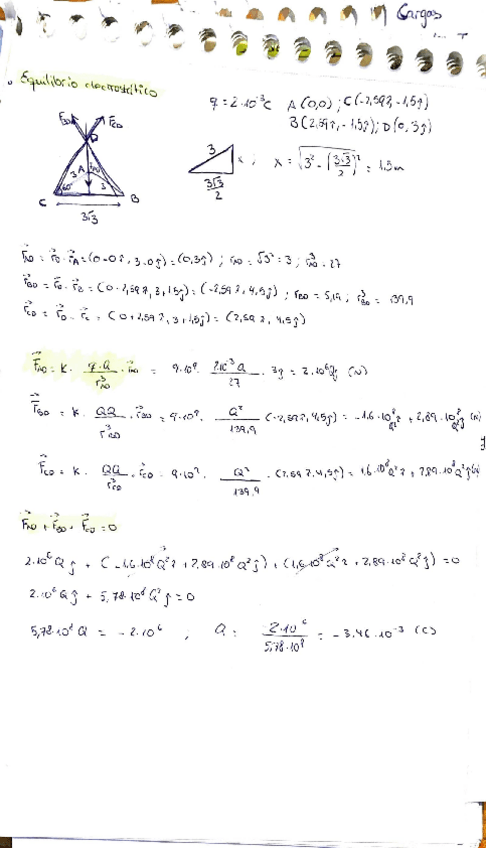 Cargas
Equilibrio electrostático
q = 2·10⁻³C A(0,0) ; C(-2,59î, -1,5ĵ)
B(2,59î, -1,5ĵ); D(0,3ĵ)
F⃗BD F⃗CD
D
3 A 3
60°
C B
3√3
3 x
3√3/2
x = √(3² - (3√3/2)²) = 1,5m
r⃗AD = r⃗D - r⃗A = (0-0î, 3-0ĵ) = (0,3ĵ) ; rAD = √3² = 3 ; r³AD = 27
r⃗BD = r⃗D - r⃗B = (0-2,59î, 3+1,5ĵ) = (-2,59î, 4,5ĵ) ; rBD = 5,19 ; r³BD = 139,9
r⃗CD = r⃗D - r⃗C = (0+2,59î, 3+1,5ĵ) = (2,59î, 4,5ĵ)
F⃗AD = K · q·Q/r³AD · r⃗AD = 9·10⁹ · 2·10⁻³Q/27 · 3ĵ = 2·10⁶Qĵ (N)
F⃗BD = K · QQ/r³BD · r⃗BD = 9·10⁹ · Q²/139,9 (-2,59î, 4,5ĵ) = -1,6·10⁸Q²î + 2,89·10⁸Q²ĵ (N)
F⃗CD = K · QQ/r³CD · r⃗CD = 9·10⁹ · Q²/139,9 · (2,59î, 4,5ĵ) = 1,6·10⁸Q²î + 2,89·10⁸Q²ĵ (N)
F⃗AD + F⃗BD + F⃗CD = 0
2·10⁶Qĵ + (-1,6·10⁸Q²î + 2,89·10⁸Q²ĵ) + (1,6·10⁸Q²î + 2,89·10⁸Q²ĵ) = 0
2·10⁶Qĵ + 5,78·10⁸Q²ĵ = 0
5,78·10⁸Q = -2·10⁶ ; Q = 2·10⁶/5,78·10⁸ = -3,46·10⁻³ (C)